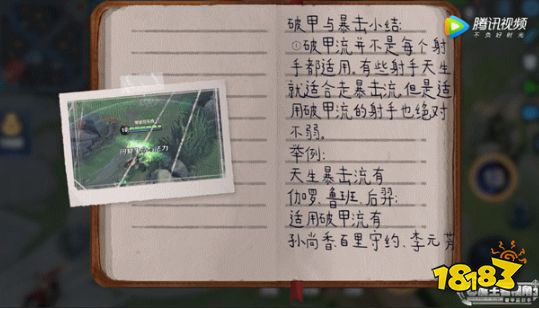 破甲与暴击小结:
①破甲流并不是每个射
手都适用,有些射手天生
就适合走暴击流,但是适
用破甲流的射手也绝对
不弱。
举例:
天生暴击流有
伽罗、鲁班、后羿;
适用破甲流有
孙尚香、百里守约、李元芳
腾讯视频
不负好时光
18183